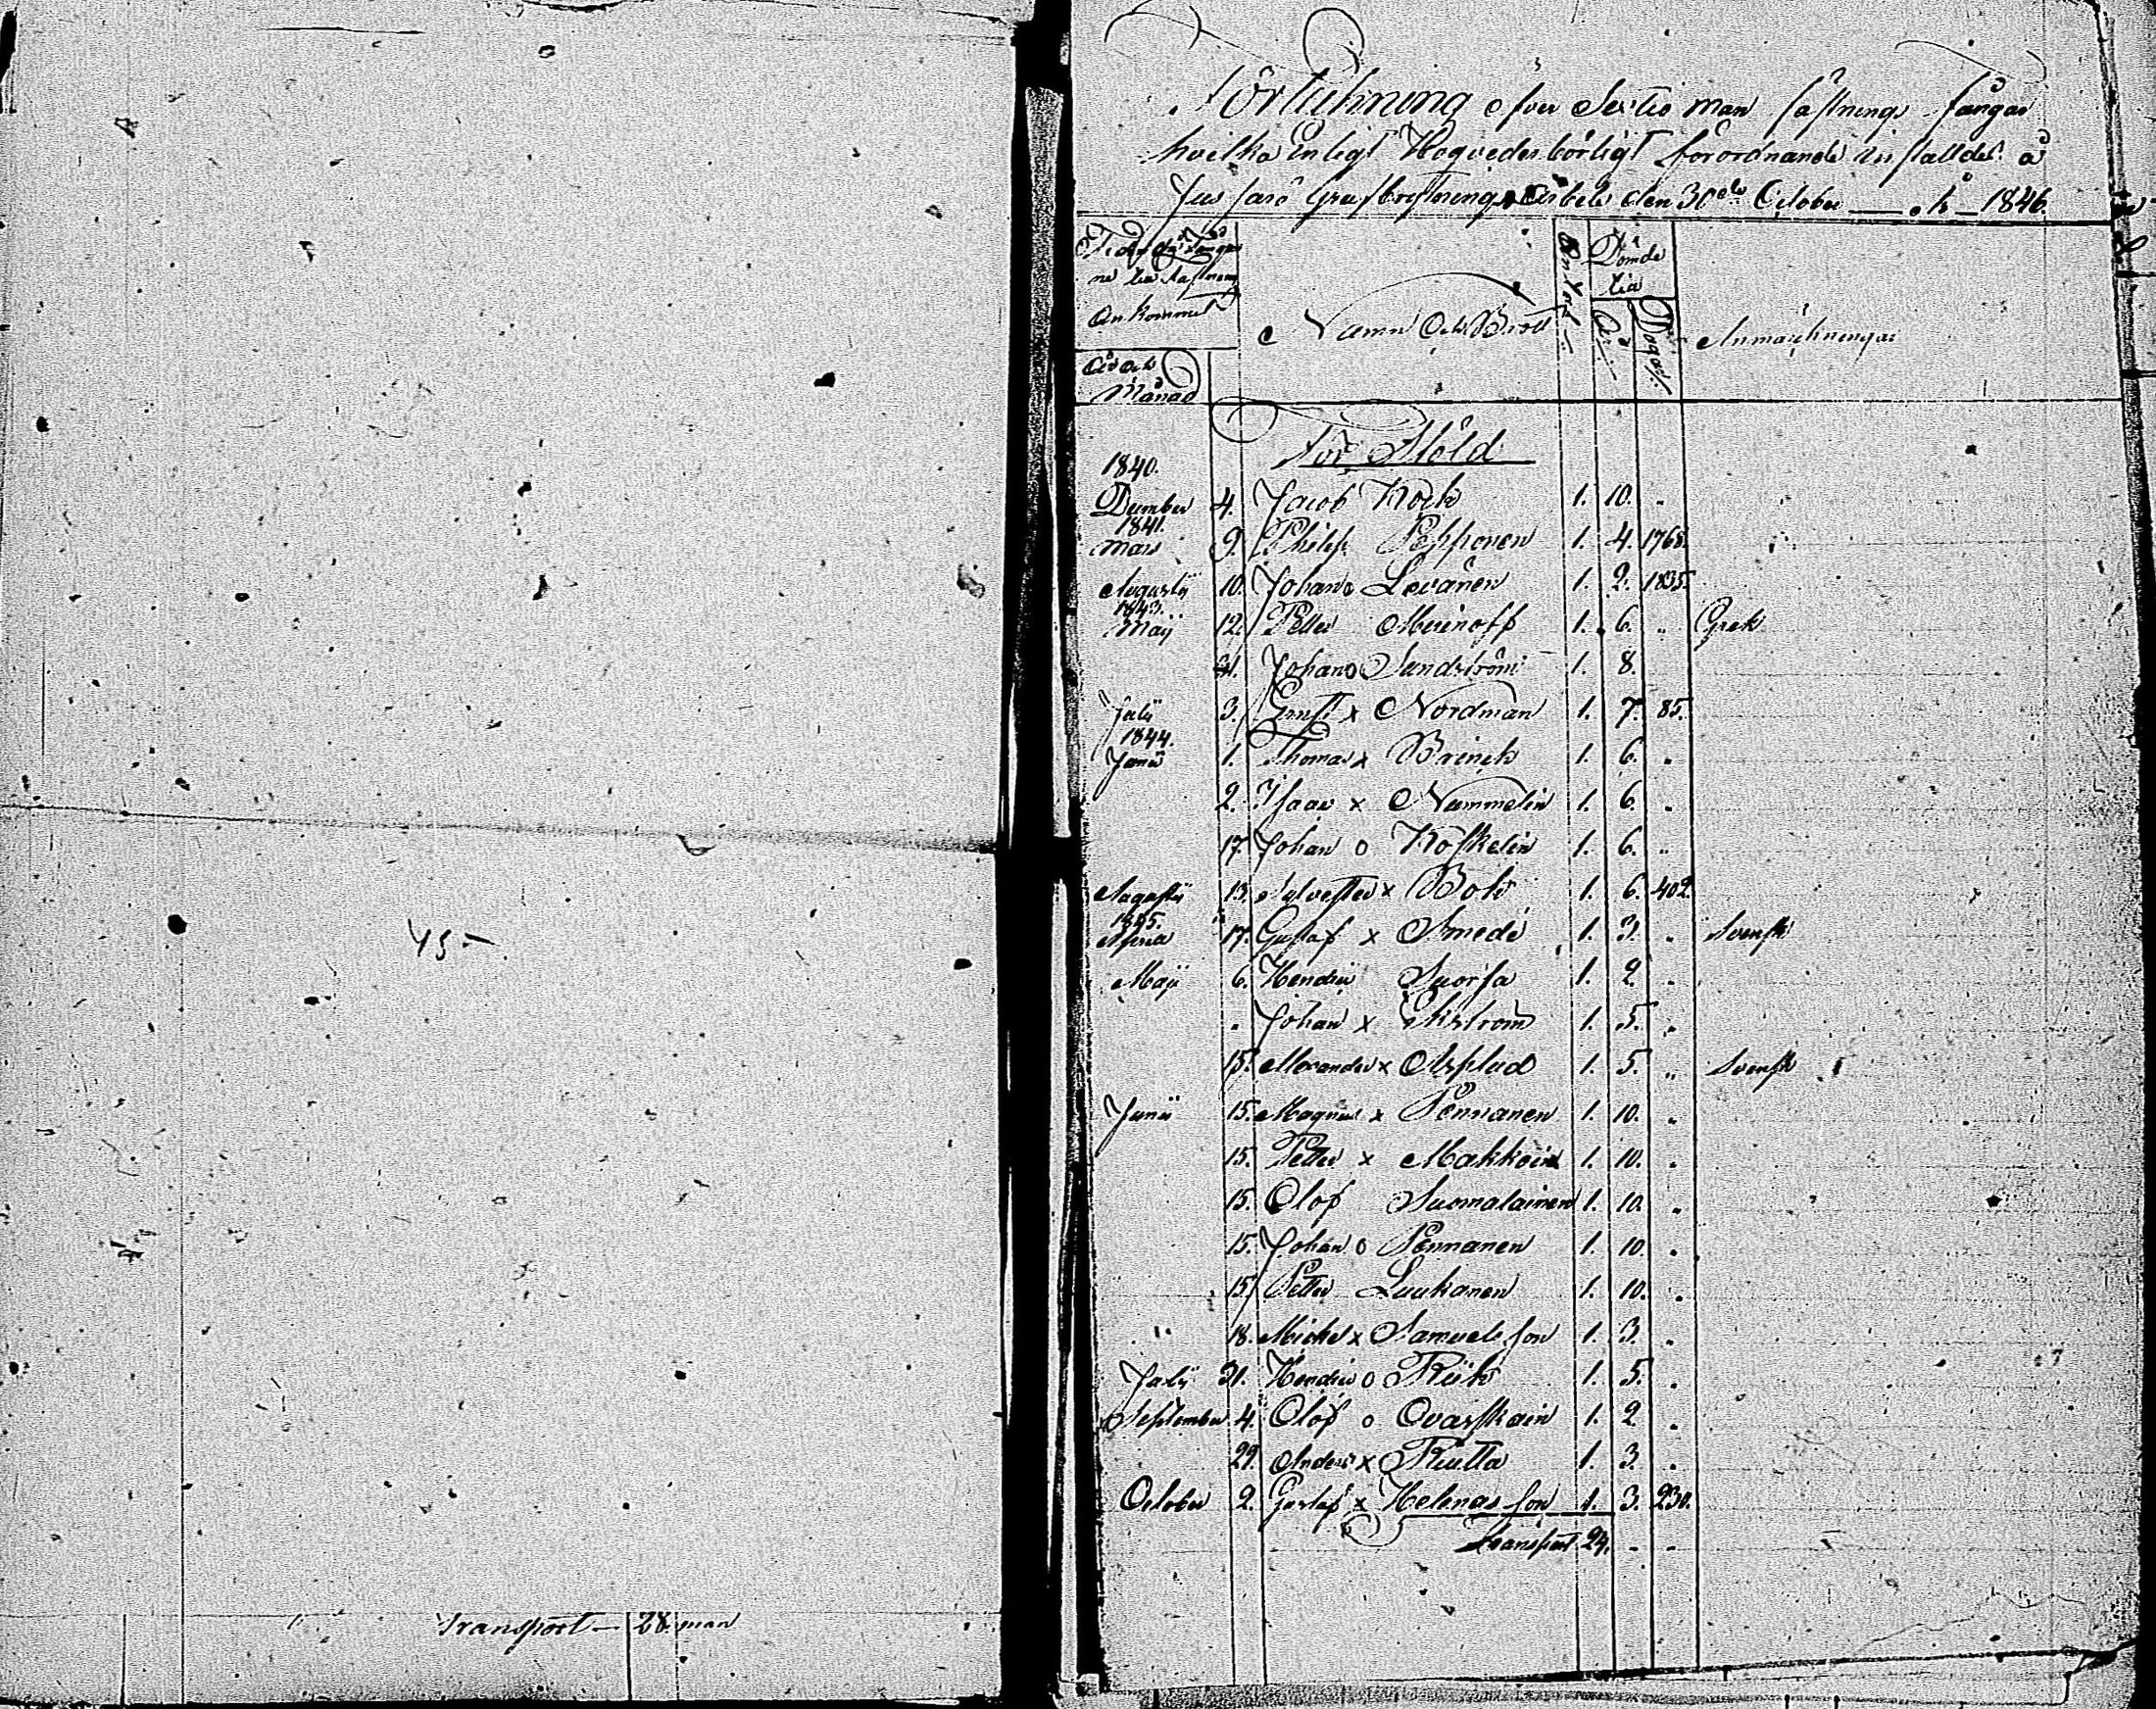 45-
Transport 28 man
Förtekning öfver Sextio man fästnings fångar
hvilka Enligt Högvederbörligt förordnande inställdes å
Jussarö Grufbrytnings Arbete den 30de October år 1846.
ankommit
Namn Och Brott
Antal
Dömde
till
År
Dagar
Anmärkningar
År och
Månad
För Stöld
1840.
December 4. Jacob Kock 1. 10. "
1841.
Mars 9. Philip Pepponen 1. 4. 1768.
Augusti 10. Johan o Levänen 1. 2. 1835.
1843.
Maij 12. Petter Merinoff 1. 6. " Grek
31. Johan o Sundström 1. 8.
Julii 3. Ernst x Nordman 1. 7. 85.
1844.
Junii 1. Thomas x Brinck 1. 6. "
2. Isaac x Nummelin 1. 6. "
17. Johan o Koskelin 1. 6. "
Augusti 13. Sylvester x Bok 1. 6. 402.
1845.
April 17. Gustaf x Smede 1. 3. " Svensk
Maji 6. Hendric Suorsa 1. 2. "
" Johan x Ekström 1. 5. "
15. Alexander x Asplund 1. 5. " Svensk
Junii 15. Magnus x Pennanen 1. 10. "
15. Petter x Makkoin 1. 10. "
15. Olof Suomalainen 1. 10. "
15. Johan o Pennanen 1. 10. "
15. Petter Luukanen 1. 10. "
" 18. Michel x Samuels son 1. 3. "
Julii 31. Hendric o Riik 1. 5. "
September 4. Olof o Ovaskain 1. 2. "
29. Anders x Riutta 1. 3. "
October 2. Gustaf x Helenas son 1. 3. 230.
Transport 24. - -